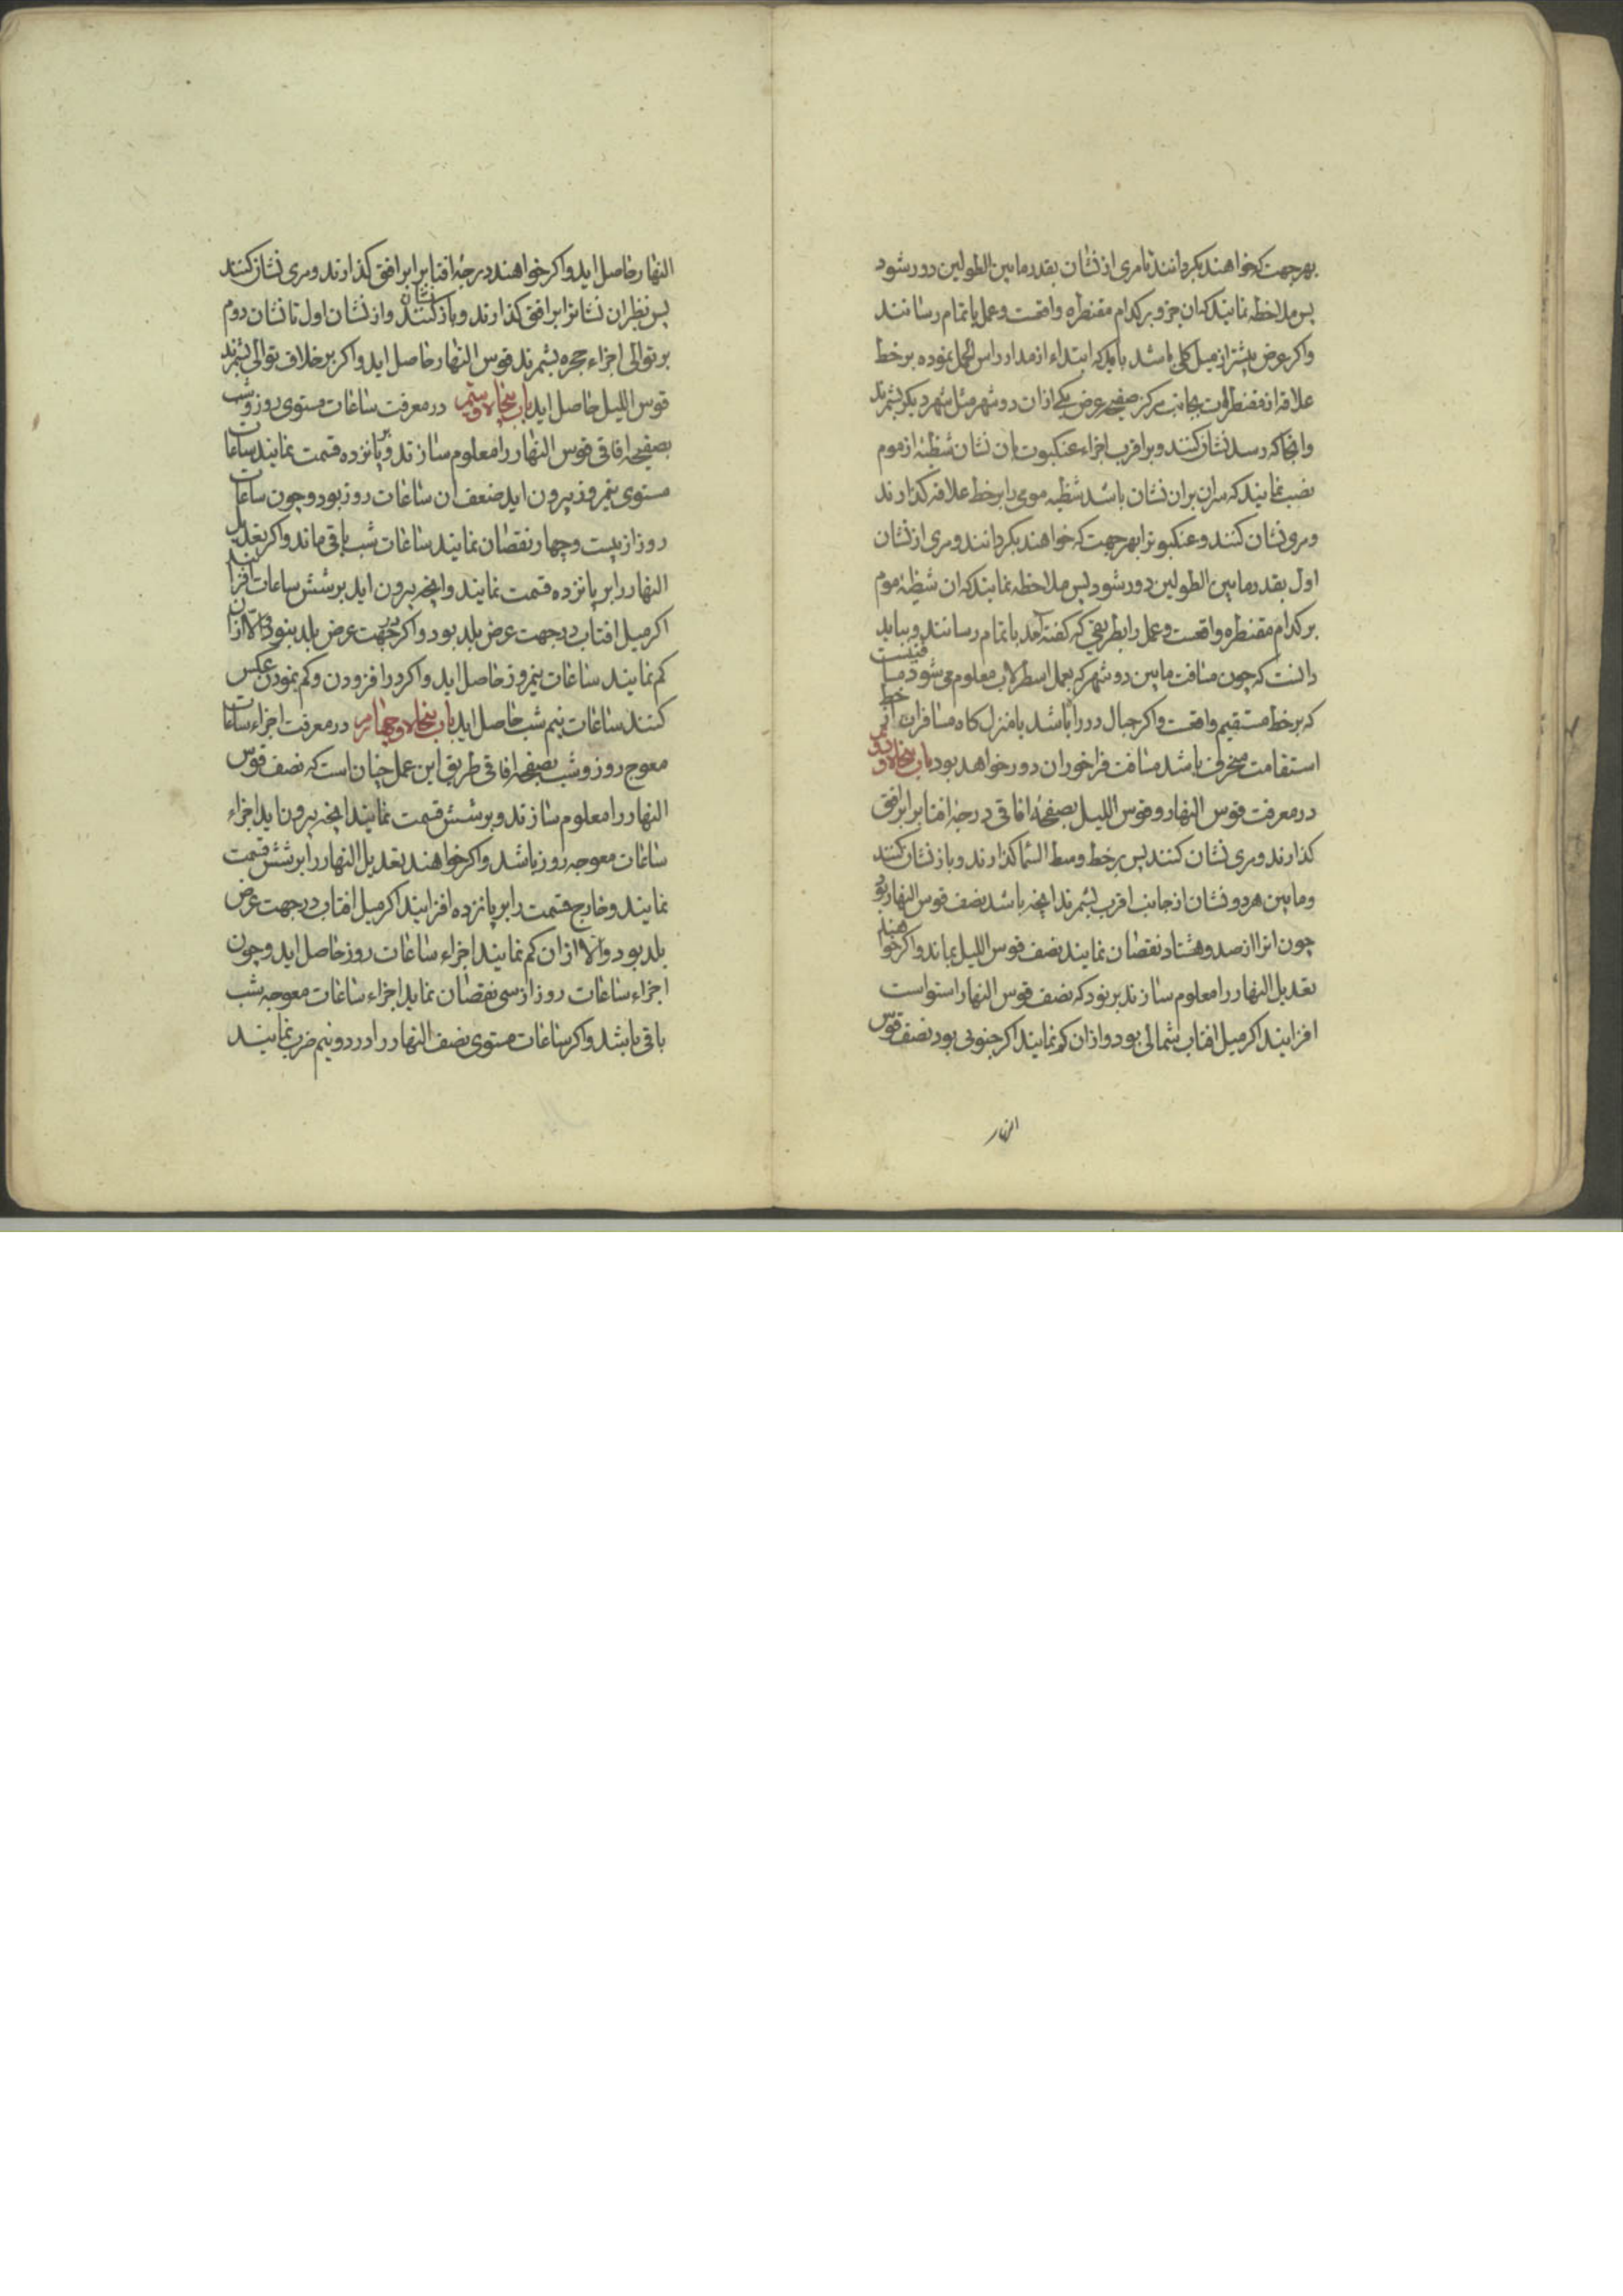 بهر جهت که خواهند بکردانند تا مری از نشان بقدر ما بین الطولین دور شود
پس ملاحظه نمایند که ان جزو بر کدام مقنطره واقعست و عمل باتمام رسانند
واکر عرض بیشتر از میل کلی باشد باید که ابتداء از مدار راس الحمل نموده بر خط
علاقه از مقنطرات بجانب مرکز صفیحه عرض یکی از ان دو شهر مثل شهر دیکر بشمرند
وانجا که رسد نشان کنند و بر اقرب اجزاء عنکبوت بان نشان شظیهٔ از موم
نصب نمایند که سران بران نشان باشد شظیه موی را بر خط علاقه کذارند
ومری نشان کنند و عنکبوترا بهر جهت که خواهند بکردانند و مری از نشان
اول بقدر ما بین الطولین دور شود پس ملاحظه نمایند که ان شظیهٔ موم
بر کدام مقنطره واقعست و عمل را بطریقی که کفته آمد باتمام رسانند و بباید
دانست که چون مسافت ما بین دو شهر که بعمل اسطرلاب معلوم می شود مسافتیست
که بر خط مستقیم واقعست واکر جبال در راه باشد یا منزل کاه مسافران از خط
استقامت منحرف باشد مسافت فراخور ان دور خواهد بود باب پنجاه و دویم
در معرفت قوس النهار و قوس اللیل بصفحهٔ افاقی درجهٔ افتابرا بر افق
کذارند ومری نشان کنند پس بر خط وسط السما کذارند و باز نشان کنند
وما بین هر دو نشان از جانب اقرب بشمرند انچه باشد نصف قوس النهار بود
چون انرا از صد و هشتاد نقصان نمایند نصف قوس اللیل بماند واکر خواهند
تعدیل النهار را معلوم سازند بر نود که نصف قوس النهار استواست
افزایند اکر میل افتاب شمالی بود و از ان کم نمایند اکر جنوبی بود نصف قوس
النهار
النهار حاصل اید واکر خواهند درجهٔ افتابرا بر افق کذارند ومری نشان کنند
پس نظیر ان نشانرا بر افق کذارند و باز نشان کنند و از نشان اول تا نشان دوم
بر توالی اجزاء حجره بشمرند قوس النهار حاصل اید واکر بر خلاف توالی بشمرند
قوس اللیل حاصل اید باب پنجاه و سیم در معرفت ساعات مستوی روز و شب
بصفیحه افاقی قوس النهار را معلوم سازند و بر پانزده قسمت نمایند ساعات
مستوی نیمروز بیرون اید ضعف ان ساعات روز بود و چون ساعات
روز از بیست و چهار نقصان نمایند ساعات شب باقی ماند واکر تعدیل
النهار را بر پانزده قسمت نمایند وانچه بیرون اید بر شش ساعات افزایند
اکر میل افتاب در جهت عرض بلد بود واکر در جهت عرض بلد بنود والا از ان
کم نمایند ساعات نیمروز حاصل اید واکر در افزودن و کم نمودن عکس
کنند ساعات نیم شب حاصل اید باب پنجاه و چهارم در معرفت اجزاء ساعات
معوج روز و شب بصفیحه افاقی طریق این عمل چنان است که نصف قوس
النهار را معلوم سازند و بر شش قسمت نمایند انچه بیرون اید اجزاء
ساعات معوجه روز باشد واکر خواهند تعدیل النهار را بر شش قسمت
نمایند و خارج قسمت را بر پانزده افزایند اکر میل افتاب در جهت عرض
بلد بود والا از ان کم نمایند اجزاء ساعات روز حاصل اید و چون
اجزاء ساعات روز از سی نقصان نماید اجزاء ساعات معوجه شب
باقی باشد واکر ساعات مستوی نصف النهار را در دو و نیم ضرب نمایند